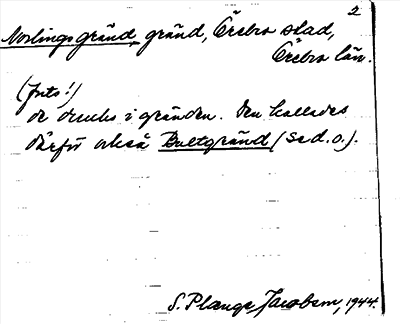 2
Norlings gränd, gränd, Örebro stad,
Örebro län.
(Forts!)
de drucks i gränden. Den kallades
därför också Bultgränd (Se d.o.).
S. Plange Jacobson, 1944.